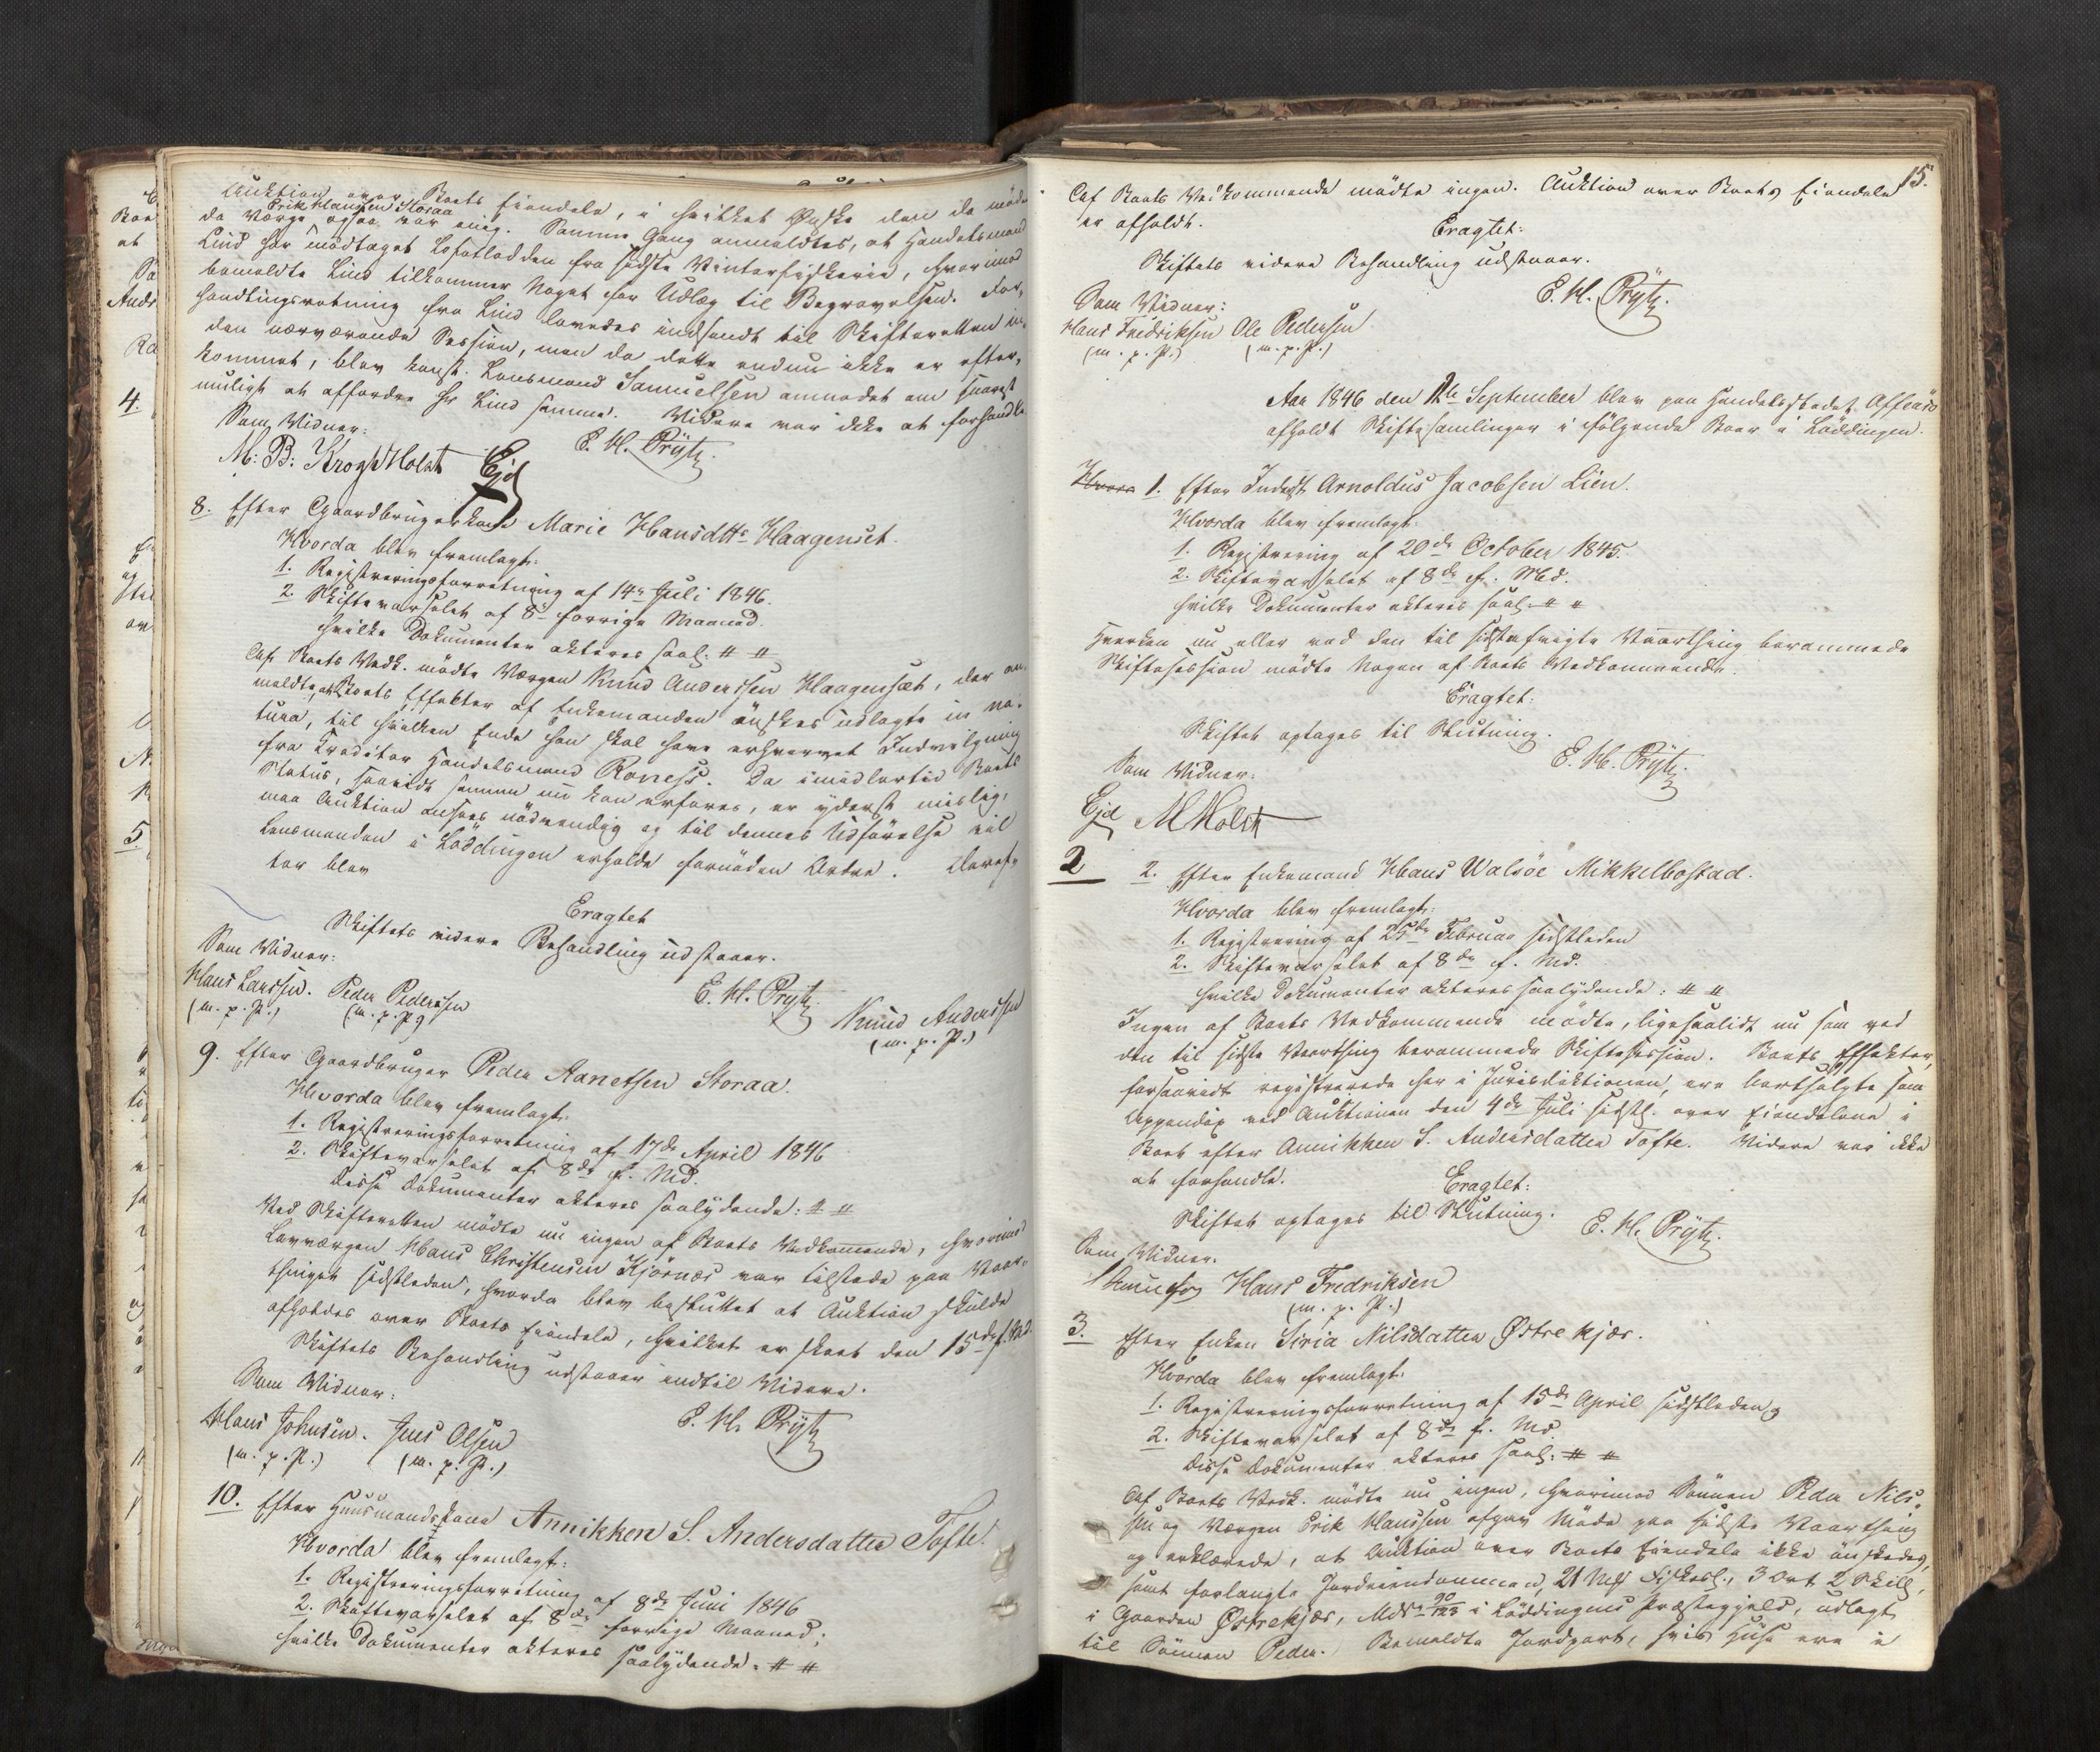 Auktion over Boets Eiendele, i hvilket Ønske den ile møden-
Erik Hanssen Storaa
de Værge ogsaa var enig. Samme Gang anmeldtes, at Handelsmand
Lind har modtaget Lofotlodden fra sidste Vinterfiskerie, hvorimod
bemeldte Lind tilkommer Noget for Udlæg til Begravelsen. For-
handlingsretning fra Lind lovedes indsendt til Skifteretten in-
den nærværende Session, men da dette endnu ikke er efter-
kommet, blev const. Lensmand Samuelsen anmodet om snarest
muligt at affordre Hr Lind samme. Videre var ikke at forhandle
Som Vidner: E. H. Prÿtz.
M: B: Krogh Holst Ejd
8. Efter Gaardbrugerkone Marie Hansdttr Haagenset.
Hvorda blev fremlagt:
1. Registreringsforretning af 14de Juli 1846.
2. Skiftevarselet af 8de forrige Maaned.
hvilke Dokumenter akteres saal: # #
Af Boets Vedk. mødte Værgen Knud Anderssen Haagenset, der an-
meldte, at Boets Effekter af Enkemanden ønskes udlagte in na-
tura, til hvilken Ende han skal have erhvervet Indvilgning
fra Creditor Handelsmand Roness. Da imidlertid Boets
Status, saavidt samme nu kan erfares, er yderst mislig,
maa Auktion ansees nødvendig og til dennes Udførelse vil
Lensmanden i Løddingen erholde fornøden Ordre. Deref-
ter blev
Eragtet
Skiftets videre Behandling udstaaer.
Som Vidner: E. H. Prÿtz.
Hans Larssen. Peder Pedersen Knud Anderssen
(m. p. P.) (m. p. P.) (m. p. P.)
9. Efter Gaardbruger Peder Aanetsen Storaa.
Hvorda blev fremlagt:
1. Registreringsforretning af 17de April 1846
2. Skiftevarselet af 8de f. Md.
disse Dokumenter akteres saalydende: # #
Ved Skifteretten mødte nu ingen af Boets Vedkommende, hvorimod
Lavværgen Hans Christensen Kjørnæs var tilstede paa Vaar-
thinget sidstleden, hvorda blev besluttet at Auktion skulde
afholdes over Boets Eiendele, hvilket er skeet den 15de f. Md.
Skiftets Behandling udstaaer indtil Videre.
Som Vidner: E. H. Prÿtz
Hans Johnsen. Jens Olsen
(m. p. P.) (m. p. P.)
10. Efter Huusmandskone Annikken S. Andersdatter Tofte.
Hvorda blev fremlagt:
1. Registreringsforretning af 8de Juni 1846
2. Skiftevarselet af 8de forrige Maaned;
hvilke Dokumenter akteres saalydende: # #
15.
Af Boets Vedkommende mødte ingen. Auktion over Boets Eiendele
er afholdt.
Eragtet:
Skiftets videre Behandling udstaaer.
Som Vidner: E. H. Prÿtz.
Hans Fredriksen Ole Pedersen
(m. p. P.) (m. p. P.)
Aar 1846 den 12te September blev paa Handelsstedet Offersø
afholdt Skiftesamlinger i følgende Boer i Løddingen.
Hvora 1. Efter Inderst Arnoldus Jacobsen Lien.
Hvorda blev fremlagt:
1. Registrering af 20de October 1845.
2. Skiftevarselet af 8de f. Md.
hvilke Dokumenter akteres saal: # #
Hverken nu eller ved den til sidstafvigte Vaarthing berammede
Skiftesession mødte Nogen af Boets Vedkommende.
Eragtet:
Skiftet optages til Slutning.
Som Vidner: E. H. Prÿtz.
Ejd M Holst
2 2. Efter Enkemand Hans Walsöe Mikkelbostad.
Hvorda blev fremlagt:
1. Registrering af 25de Februar sidstleden
2. Skiftevarselet af 8de f. Md.
hvilke Dokumenter akteres saalydende: # #
Ingen af Boets Vedkommende mødte, ligesaalidt nu som ved
den til sidste Vaarthing berammede Skiftesession. Boets Effekter,
forsaavidt registrerede her i Jurisdiktionen, ere bortsolgte som
Appendix ved Auktionen den 4de Juli sidstl. over Eiendelene i
Boet efter Annikken S. Andersdatter Tofte. Videre var ikke
at forhandle.
Eragtet:
Skiftet optages til Slutning. E. H. Prÿtz.
Som Vidner.
Hans Fredriksen
(m. p. P.)
3. Efter Enken Siria Nilsdatter Østre Kjær.
Hvorda blev fremlagt:
1. Registreringsforretning af 15de April sidstleden og
2. Skiftevarselet af 8de f. Md.
disse Dokumenter akteres saal: # #
Af Boets Vedk. mødte nu ingen, hvorimod Sønnen Peder Nils-
sen og Værgen Erik Hanssen afgav Møde paa sidste Vaarthing
og erklærede, at Auktion over Boets Eiendele ikke ønskedes,
samt forlangte Jordeiendommen, 21 Mk Fiskesl., 3 Ort 2 Skill,
i Gaarden Østrekjær, Mdr 90/123 i Løddingens Præstegjeld, udlagt
til Sønnen Peder. Bemeldte Jordpart, hvis Huse ere i